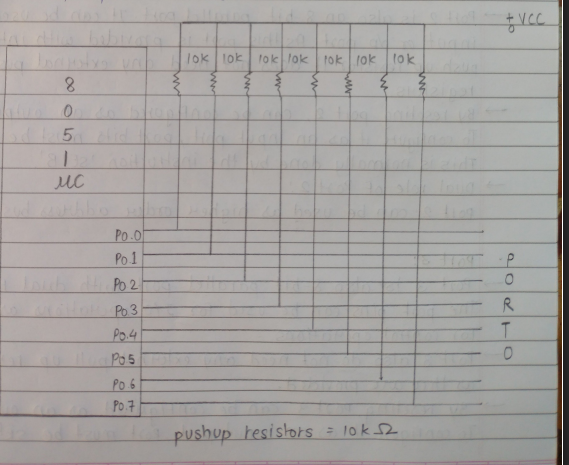 +VCC
10k 10k 10k 10k 10k 10k 10k
8
0
5
1
μC
P0.0
P0.1
P0.2
P0.3
P0.4
P0.5
P0.6
P0.7
P
O
R
T
O
pushup resistors = 10k Ω